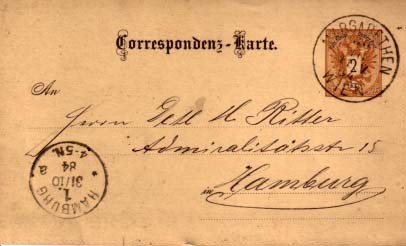 Correspondenz-Karte.
2
WIEN
An
Herrn Detl H Ritter
Admiralitätsstr 15
in Hamburg
HAMBURG
1.
a
31/10
84
4-5N.